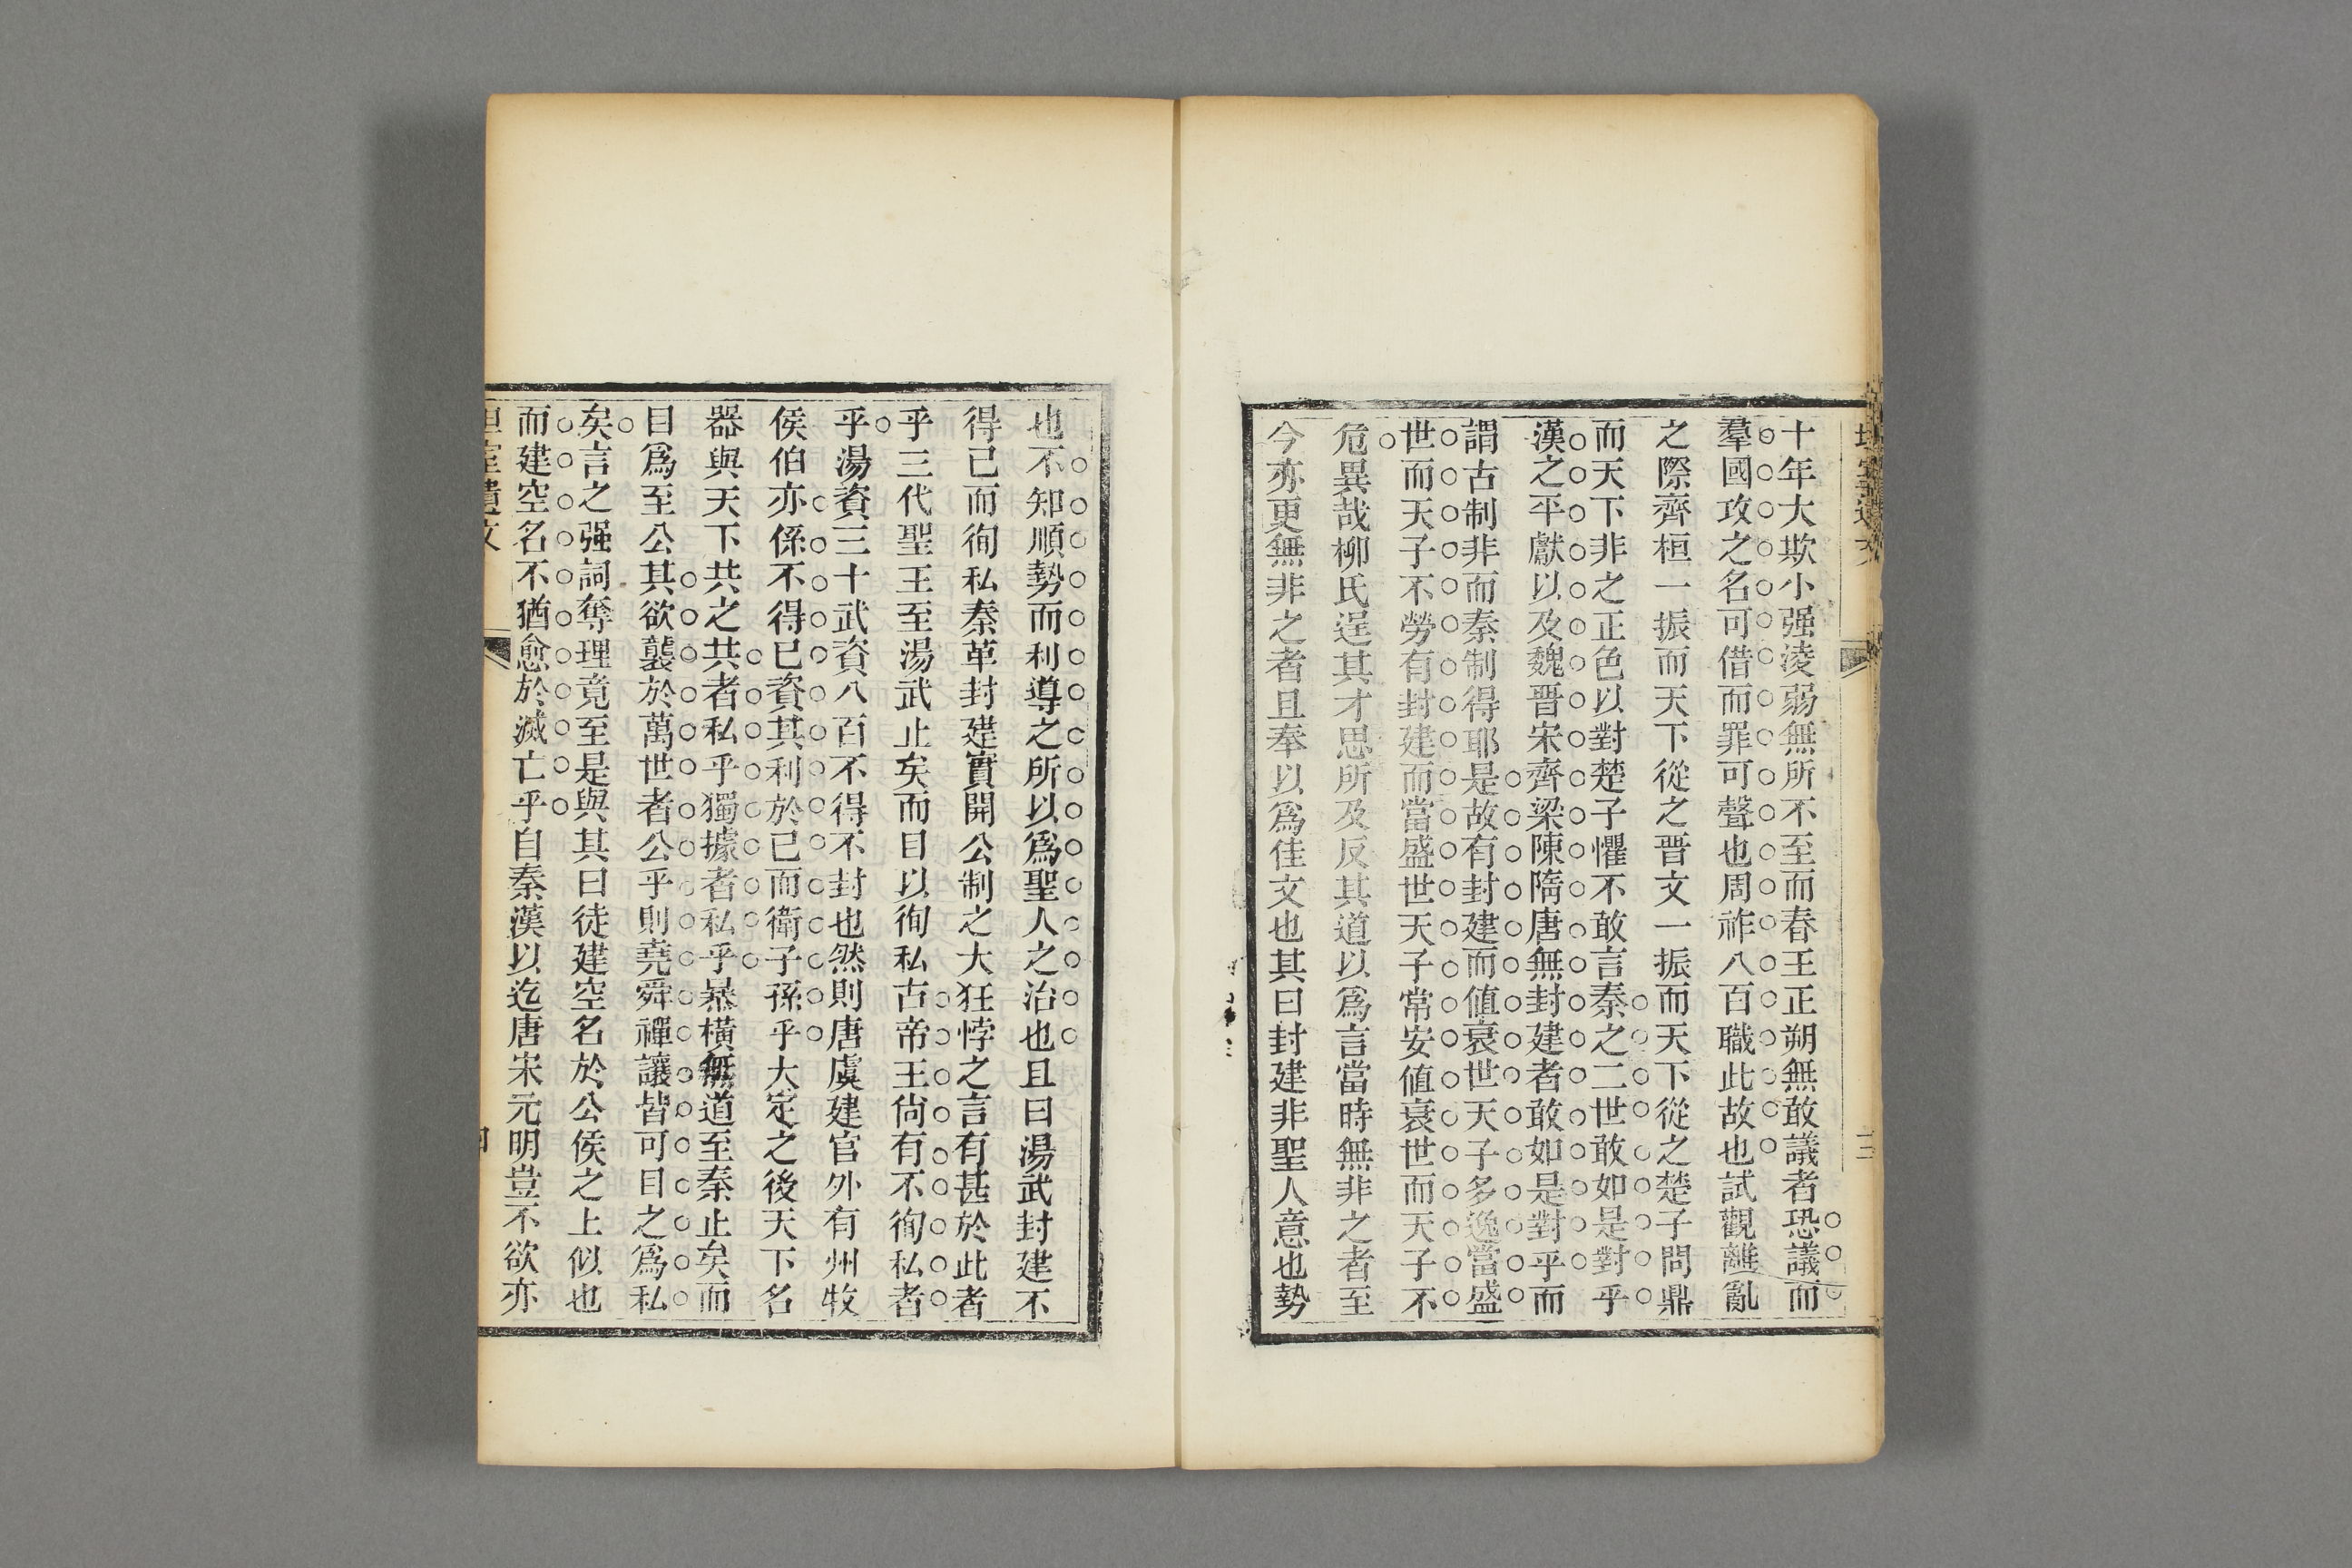 十年大欺小强淩弱無所不至而春王正朔無敢議者恐議而
羣國攻之名可借而罪可聲也周祚八百職此故也試觀離亂
之際齊桓一振而天下從之晋文一振而天下從之楚子問鼎
而天下非之正色以對楚子懼不敢言秦之二世敢如是對乎
漢之平獻以及魏晋宋齊梁陳隋唐無封建者敢如是對乎而
謂古制非而秦制得耶是故有封建而値衰世天子多逸當盛
世而天子不勞有封建而當盛世天子常安値衰世而天子不
危異哉柳氏逞其才思所及反其道以爲言當時無非之者至
今亦更無非之者且奉以爲佳文也其曰封建非聖人意也勢
也不知順勢而利導之所以爲聖人之治也且曰湯武封建不
得已而徇私秦革封建實開公制之大狂悖之言有甚於此者
乎三代聖王至湯武止矣而目以徇私古帝王尙有不徇私者
乎湯資三十武資八百不得不封也然則唐虞建官外有州牧
侯伯亦係不得已資其利於己而衛子孫乎大定之後天下名
器與天下共之共者私乎獨據者私乎暴橫無道至秦止矣而
目爲至公其欲襲於萬世者公乎則堯舜禪讓皆可目之爲私
矣言之强詞奪理竟至是與其曰徒建空名於公侯之上似也
而建空名不猶愈於滅亡乎自秦漢以迄唐宋元明豈不欲亦